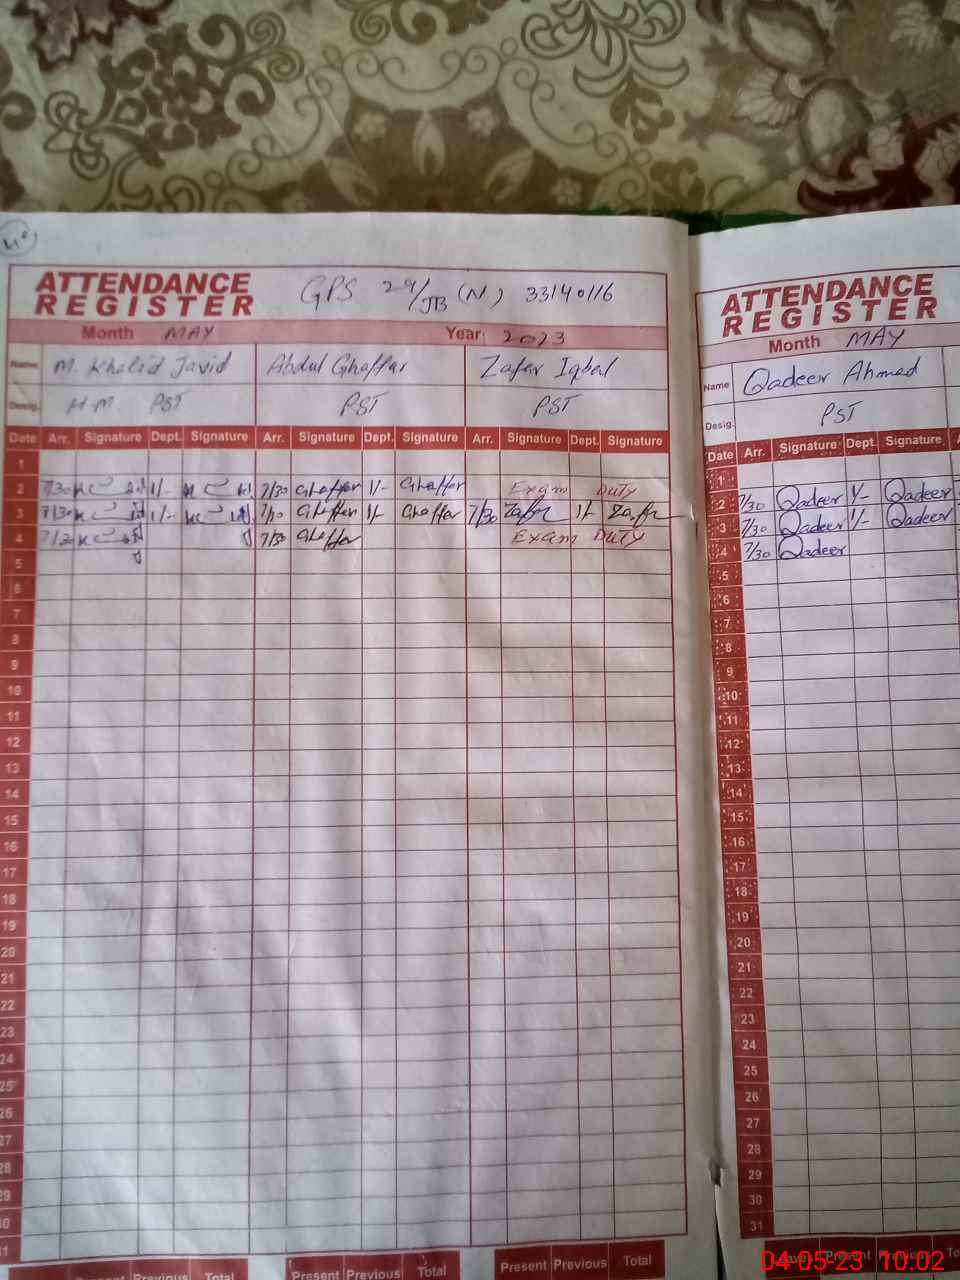 ATTENDANCE
REGISTER
GPS 29/JB (N) 33140116
Month MAY Year: 2023
Name M. Khalid Javid Abdul Ghaffar Zafer Iqbal
Desig. H.M PST PST PST
Date Arr. Signature Dept. Signature Arr. Signature Dept. Signature Arr. Signature Dept. Signature
1
2 7/30 1/- 7/30 Ghaffar 1/- Ghaffar Exam Duty
3 7/30 1/- Ghaffar 1/- Ghaffar 7/30 Zafr 1/- Zafr
4 7/30 Ghaffar Exam Duty
5
6
7
8
9
10
11
12
13
14
15
16
17
18
19
20
21
22
23
24
25
26
27
28
29
30
31
Present Previous Total Present Previous Total Present Previous Total
ATTENDANCE
REGISTER
Month MAY
Name Qadeer Ahmed
Desig. PST
Date Arr. Signature Dept. Signature
1
2 7/30 Qadeer 1/- Qadeer
3 7/30 Qadeer 1/- Qadeer
4 7/30 Qadeer
5
6
7
8
9
10
11
12
13
14
15
16
17
18
19
20
21
22
23
24
25
26
27
28
29
30
31
Present Previous Total
04-05-23 10:02